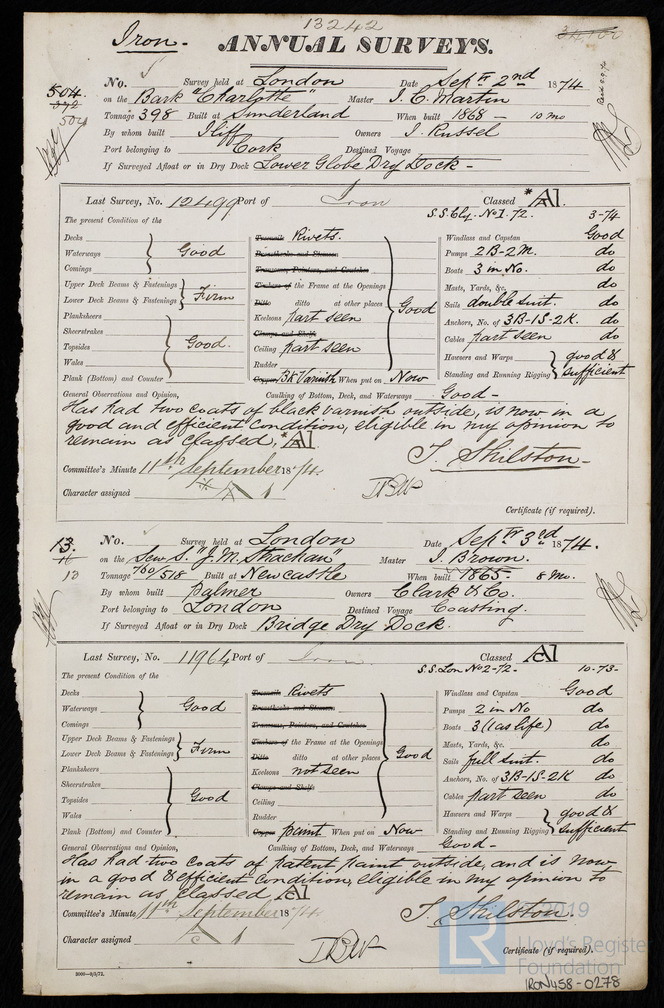 13242
Iron.
ANNUAL SURVEYS.
504. No. Survey held at London Date Sept 2nd 1874
372 on the Bark "Charlotte" Master J. C. Martin
504 Tonnage 398 Built at Sunderland When built 1868 — 10 mo
By whom built Iliff Owners J. Russel
Port belonging to Cork Destined Voyage
If Surveyed Afloat or in Dry Dock Lower Globe Dry Dock -
Last Survey, No. 12499 Port of Iron Classed *A1.
S.S. Cly. No 1. 72. 3-74
The present Condition of the
Decks
Waterways Good
Comings
Upper Deck Beams & Fastenings
Lower Deck Beams & Fastenings Firm
Planksheers
Sheerstrakes
Topsides Good.
Wales
Plank (Bottom) and Counter
Treenails Rivets.
Breasthooks and Stemson
Transoms, Pointers, and Crutches
Timbers of the Frame at the Openings
Ditto ditto at other places Good
Keelsons part seen
Clamps and Shelfs
Ceiling part seen
Rudder
Copper Bk Varnish When put on Now
Windlass and Capstan Good
Pumps 2B-2M. do
Boats 3 in No. do
Masts, Yards, &c. do
Sails double suit. do
Anchors, No. of 3B-1S-2K. do
Cables part seen do
Hawsers and Warps good &
Standing and Running Rigging sufficient
General Observations and Opinion, Caulking of Bottom, Deck, and Waterways Good -
Has had two coats of black varnish outside, is now in a
good and efficient condition, eligible in my opinion to
remain as classed, *A1
T. Skilston -
Committee's Minute 11th September 1874.
Character assigned
Certificate (if required).
13. No. Survey held at London Date Sept 3rd 1874.
on the Sew S. "J. M. Strachan" Master J. Brown.
13 Tonnage 760/518 Built at Newcastle When built 1865- 8 Mo.
By whom built Palmer Owners Clark & Co.
Port belonging to London Destined Voyage Coasting.
If Surveyed Afloat or in Dry Dock Bridge Dry Dock.
Last Survey, No. 11964 Port of Iron Classed A1
S.S. Lon No 2-72- 10-73-
The present Condition of the
Decks
Waterways Good
Comings
Upper Deck Beams & Fastenings
Lower Deck Beams & Fastenings Firm
Planksheers
Sheerstrakes
Topsides Good
Wales
Plank (Bottom) and Counter
Treenails Rivets
Breasthooks and Stemson
Transoms, Pointers, and Crutches
Timbers of the Frame at the Openings
Ditto ditto at other places Good
Keelsons not seen
Clamps and Shelfs
Ceiling
Rudder
Copper paint When put on Now
Windlass and Capstan Good
Pumps 2 in No do
Boats 3 (1 as life) do
Masts, Yards, &c. do
Sails full suit. do
Anchors, No. of 3B-1S-2K do
Cables part seen do
Hawsers and Warps good &
Standing and Running Rigging sufficient
General Observations and Opinion, Caulking of Bottom, Deck, and Waterways Good -
Has had two coats of patent paint outside, and is now
in a good & efficient condition, eligible in my opinion to
remain as classed, A1
T. Skilston.
Committee's Minute 11th September 1874
Character assigned
Certificate (if required).
2000—9/5/72.
©2019
LR
Lloyd's Register
Foundation
IRON458-0278